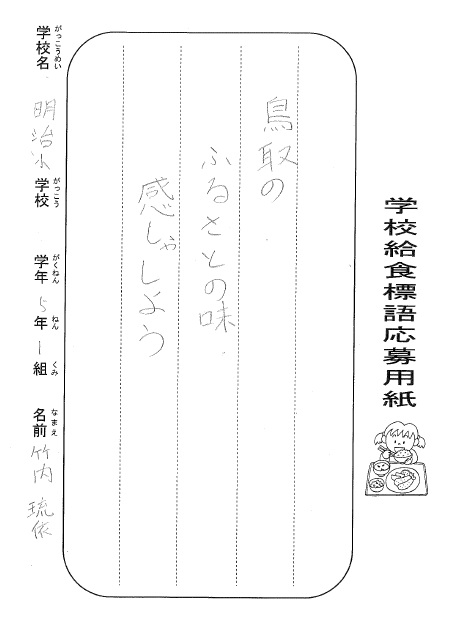 学校給食標語応募用紙
鳥取の
ふるさとの味
感しゃしよう
学校名 明治小学校 学年5年1組 名前 竹内 琉依
がっこうめい がっこう がくねん ねん くみ なまえ